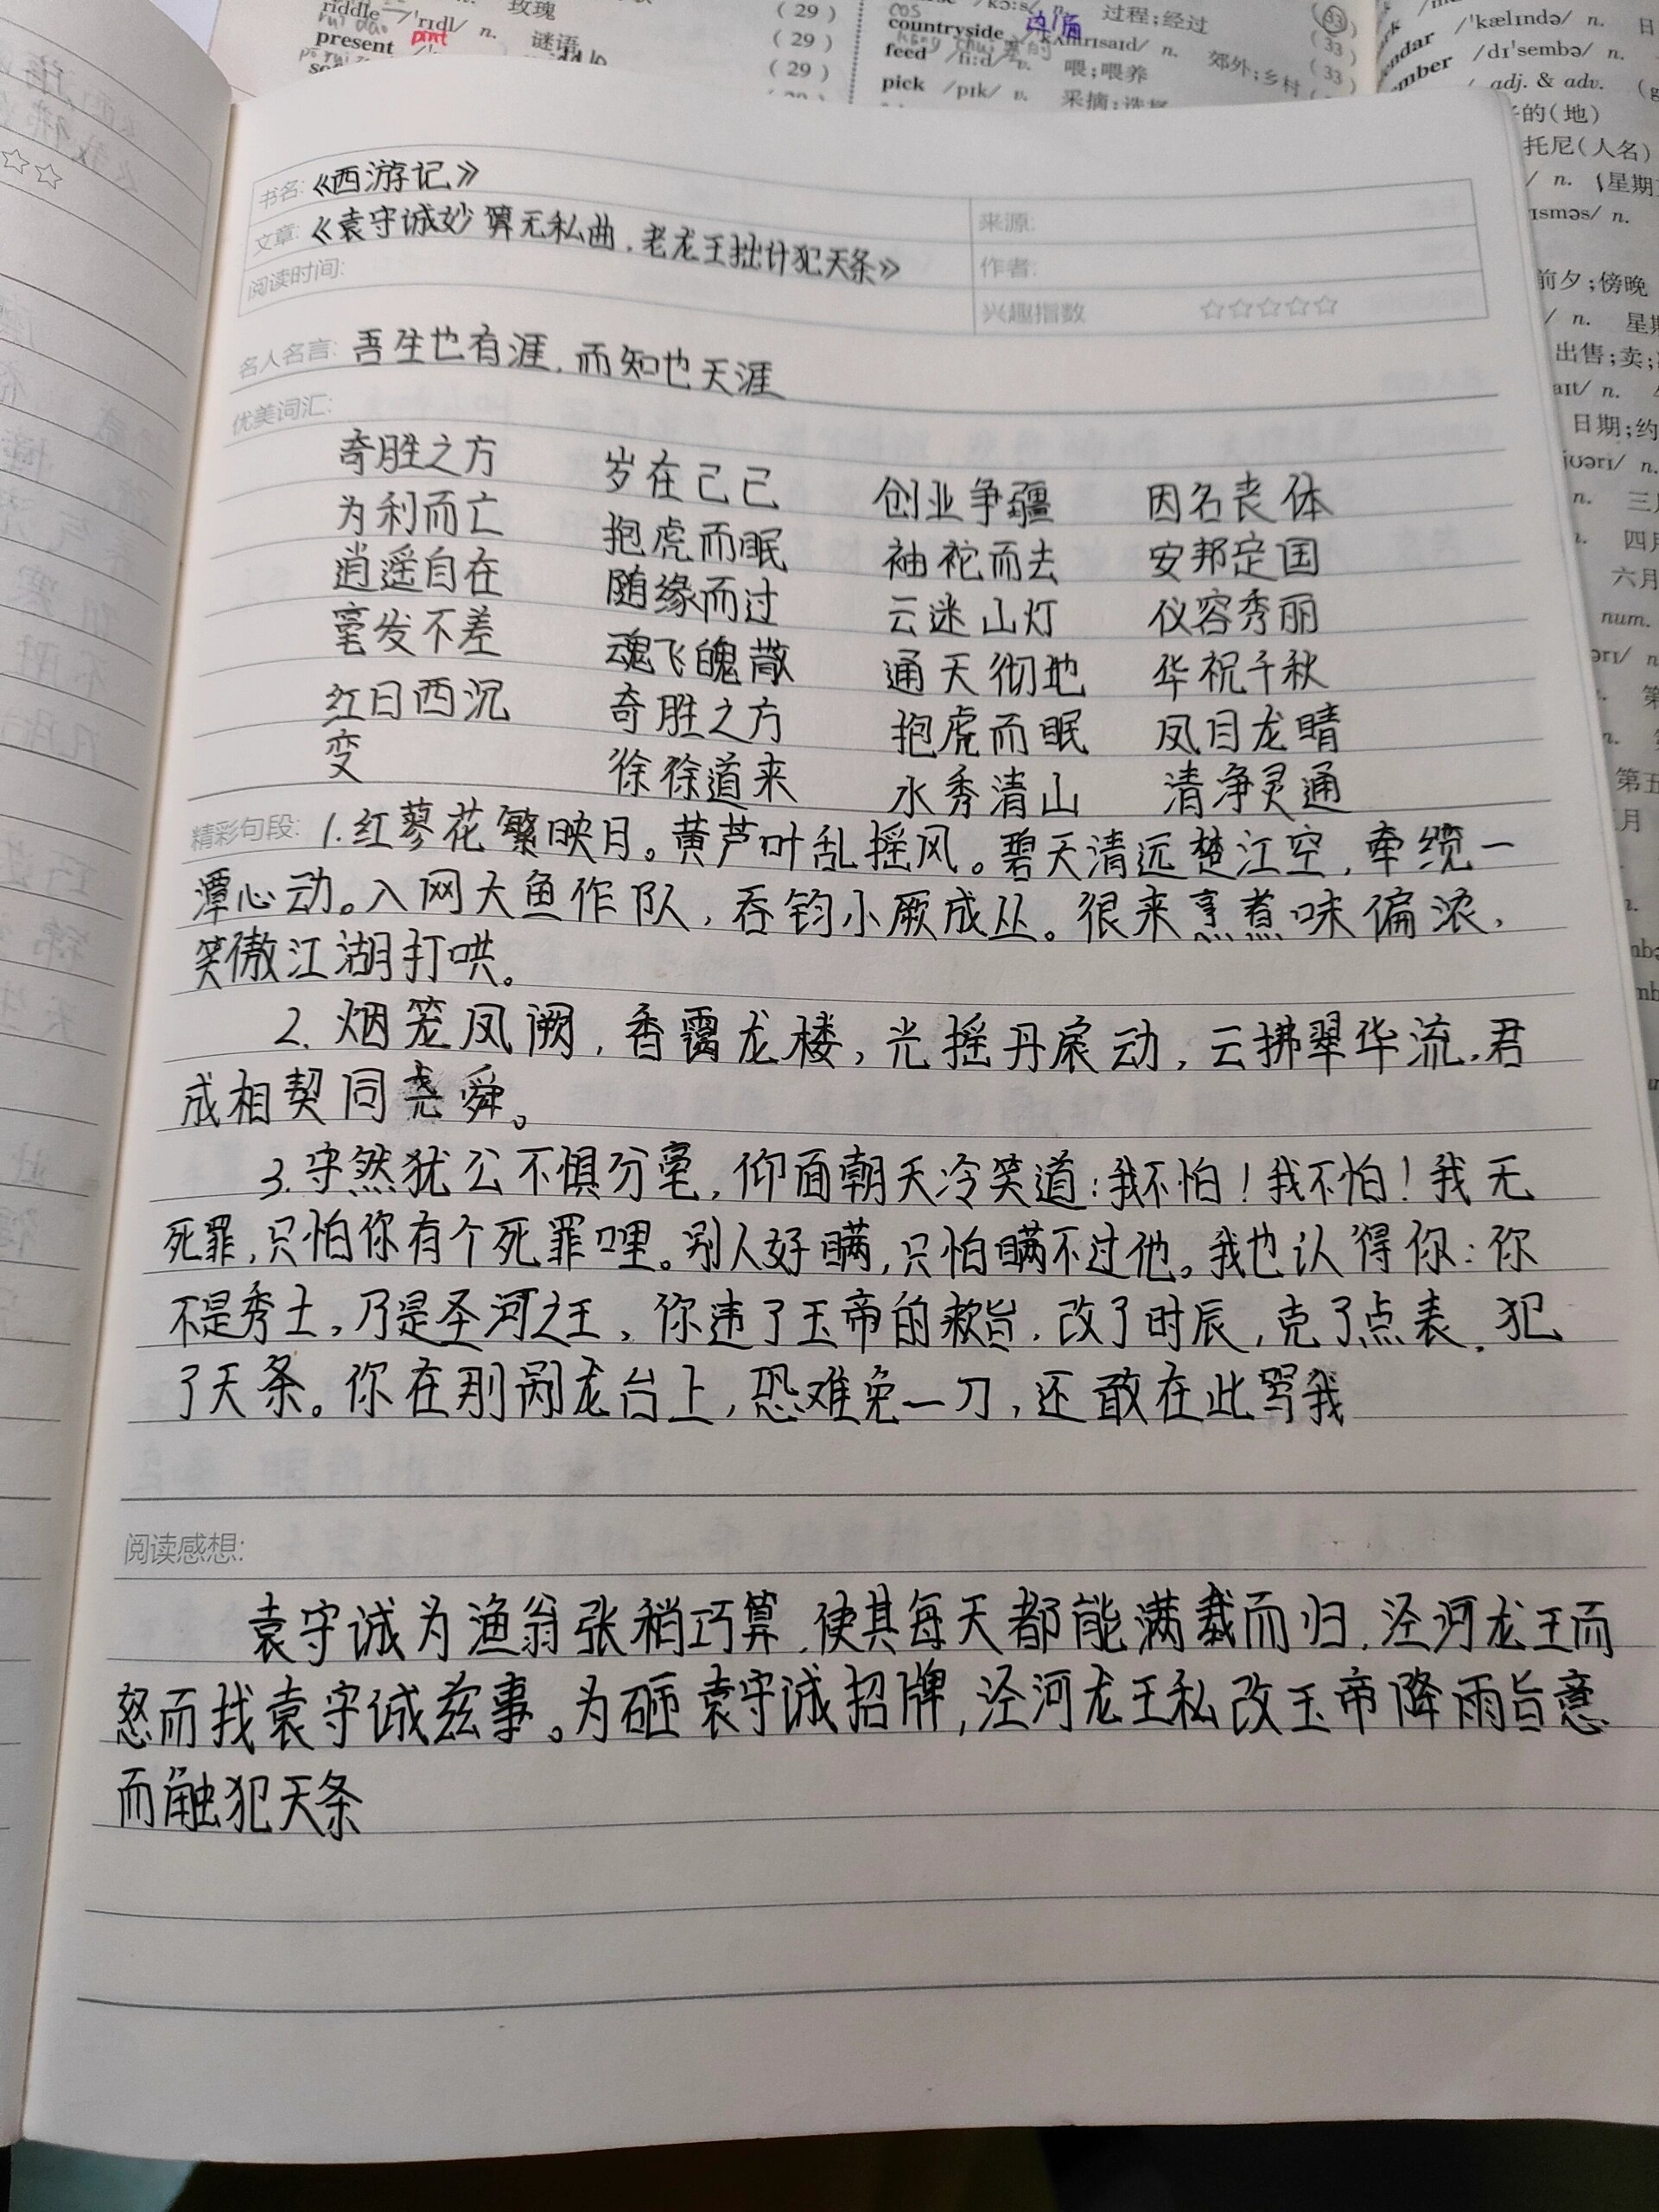 riddle /'rɪdl/ n. 谜语
玫瑰
(29)
present
(29)
(29)
过程;经过
countryside /'kʌntrɪsaɪd/ n. 郊外;乡村
feed /fiːd/ v. 喂;喂养
pick /pɪk/ v. 采摘;
(33)
(33)
(33)
/'kælɪndə/ n. 日
/dɪ'sembə/ n.
adj. & adv.
的(地)
托尼(人名)
n. (星期
n.
前夕;傍晚
n. 星期
出售;卖;
n.
日期;约
n.
n. 三月
四月
六月
num.
书名: 《西游记》
文章: 《袁守诚妙算无私曲,老龙王拙计犯天条》
阅读时间:
来源:
作者:
兴趣指数 ☆☆☆☆☆
名人名言: 吾生也有涯,而知也天涯
优美词汇:
奇胜之方 岁在己己 创业争疆 因名丧体
为利而亡 抱虎而眠 袖袉而去 安邦定国
逍遥自在 随缘而过 云迷山灯 仪容秀丽
毫发不差 魂飞魄散 通天彻地 华祝千秋
红日西沉 奇胜之方 抱虎而眠 凤目龙睛
变 徐徐道来 水秀清山 清净灵通
精彩句段: 1.红蓼花繁映月。黄芦叶乱摇风。碧天清远楚江空,牵缆一
潭心动。入网大鱼作队,吞钓小厥成丛。很来烹煮味偏浓,
笑傲江湖打哄。
2. 烟笼凤阙,香霭龙楼,光摇丹扆动,云拂翠华流,君
成相契同尧舜。
3.守然犹公不惧分毫,仰面朝天冷笑道:我不怕!我不怕!我无
死罪,只怕你有个死罪哩。别人好瞒,只怕瞒不过他。我也认得你:你
不是秀士,乃是圣河之王,你违了玉帝的敕旨,改了时辰,克了点表,犯
了天条。你在那剐龙台上,恐难免一刀,还敢在此骂我
阅读感想:
袁守诚为渔翁张稍巧算,使其每天都能满载而归,泾河龙王而
怒而找袁守诚兹事。为砸袁守诚招牌,泾河龙王私改玉帝降雨旨意
而触犯天条